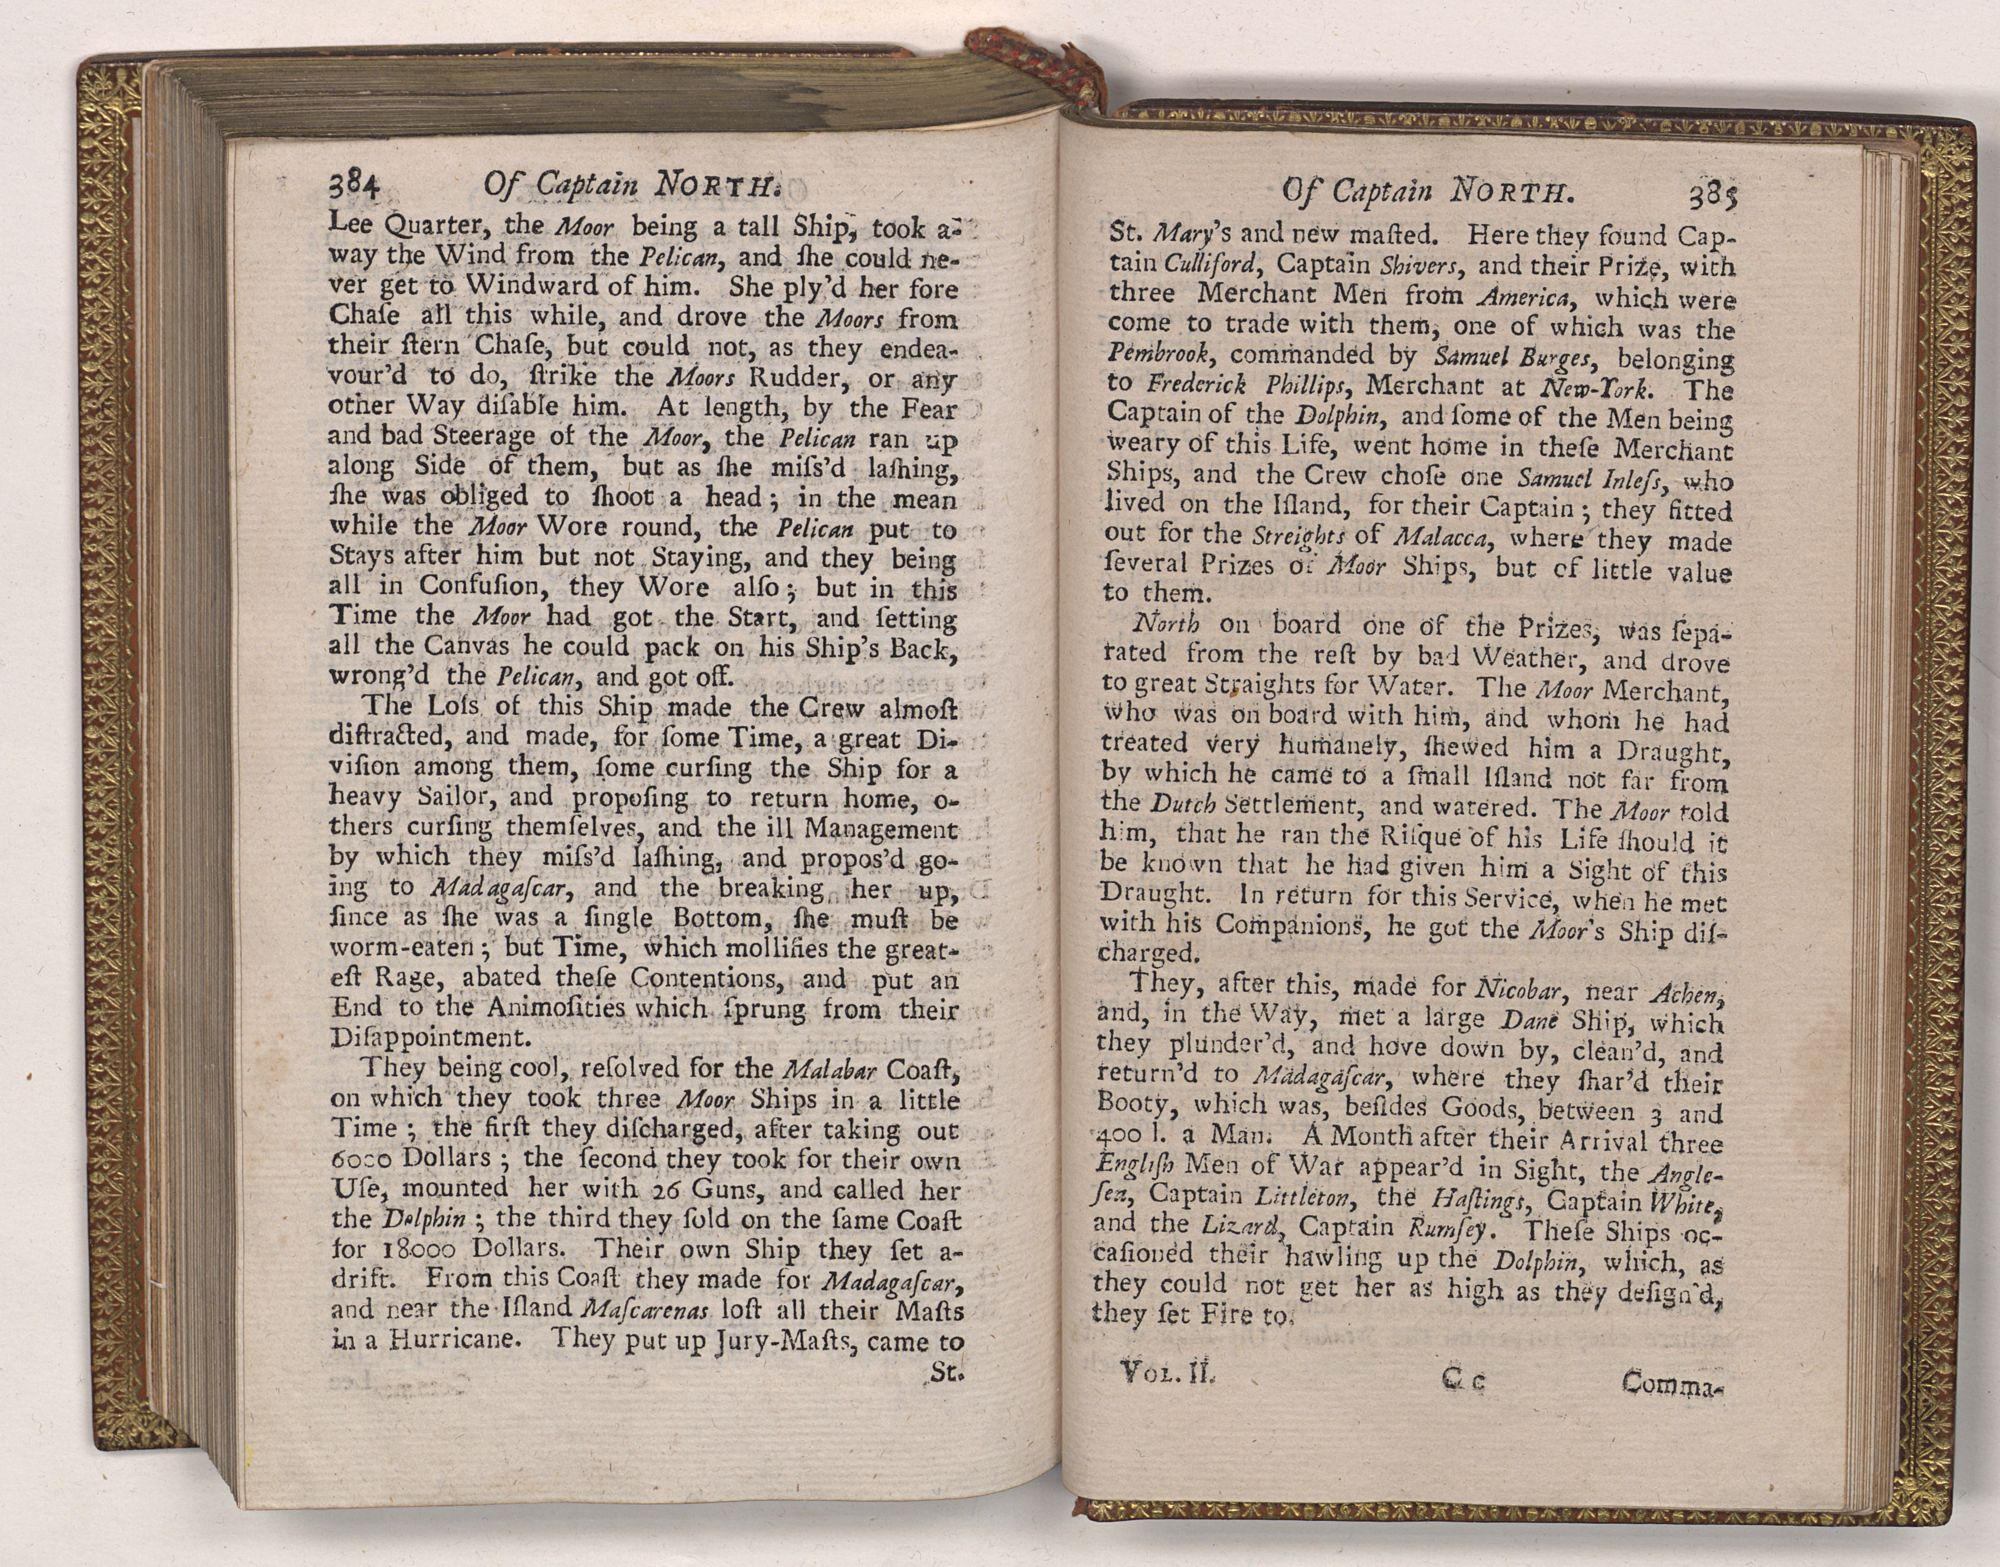 384 Of Captain NORTH.
Lee Quarter, the Moor being a tall Ship, took a-
way the Wind from the Pelican, and ſhe could ne-
ver get to Windward of him. She ply'd her fore
Chaſe all this while, and drove the Moors from
their ſtern Chaſe, but could not, as they endea-
vour'd to do, ſtrike the Moors Rudder, or any
other Way diſable him. At length, by the Fear
and bad Steerage of the Moor, the Pelican ran up
along Side of them, but as ſhe miſs'd laſhing,
ſhe was obliged to ſhoot a head; in the mean
while the Moor Wore round, the Pelican put to
Stays after him but not Staying, and they being
all in Confuſion, they Wore alſo; but in this
Time the Moor had got the Start, and ſetting
all the Canvas he could pack on his Ship's Back,
wrong'd the Pelican, and got off.
The Loſs of this Ship made the Crew almoſt
diſtracted, and made, for ſome Time, a great Di-
viſion among them, ſome curſing the Ship for a
heavy Sailor, and propoſing to return home, o-
thers curſing themſelves, and the ill Management
by which they miſs'd laſhing, and propos'd go-
ing to Madagaſcar, and the breaking her up,
ſince as ſhe was a ſingle Bottom, ſhe muſt be
worm-eaten; but Time, which mollifies the great-
eſt Rage, abated theſe Contentions, and put an
End to the Animoſities which ſprung from their
Diſappointment.
They being cool, reſolved for the Malabar Coaſt,
on which they took three Moor Ships in a little
Time; the firſt they diſcharged, after taking out
6000 Dollars; the ſecond they took for their own
Uſe, mounted her with 26 Guns, and called her
the Dolphin; the third they ſold on the ſame Coaſt
for 18000 Dollars. Their own Ship they ſet a-
drift. From this Coaſt they made for Madagaſcar,
and near the Iſland Maſcarenas loſt all their Maſts
in a Hurricane. They put up Jury-Maſts, came to
St.
Of Captain NORTH. 385
St. Mary's and new maſted. Here they found Cap-
tain Culliford, Captain Shivers, and their Prize, with
three Merchant Men from America, which were
come to trade with them, one of which was the
Pembrook, commanded by Samuel Burges, belonging
to Frederick Phillips, Merchant at New-York. The
Captain of the Dolphin, and ſome of the Men being
weary of this Life, went home in theſe Merchant
Ships, and the Crew choſe one Samuel Inleſs, who
lived on the Iſland, for their Captain; they fitted
out for the Streights of Malacca, where they made
ſeveral Prizes of Moor Ships, but of little value
to them.
North on board one of the Prizes, was ſepa-
rated from the reſt by bad Weather, and drove
to great Straights for Water. The Moor Merchant,
who was on board with him, and whom he had
treated very humanely, ſhewed him a Draught,
by which he came to a ſmall Iſland not far from
the Dutch Settlement, and watered. The Moor told
him, that he ran the Riſque of his Life ſhould it
be known that he had given him a Sight of this
Draught. In return for this Service, when he met
with his Companions, he got the Moor's Ship diſ-
charged.
They, after this, made for Nicobar, near Achen,
and, in the Way, met a large Dane Ship, which
they plunder'd, and hove down by, clean'd, and
return'd to Madagaſcar, where they ſhar'd their
Booty, which was, beſides Goods, between 3 and
400 l. a Man. A Month after their Arrival three
Engliſh Men of War appear'd in Sight, the Angle-
ſea, Captain Littleton, the Haſtings, Captain White,
and the Lizard, Captain Rumſey. Theſe Ships oc-
caſioned their hawling up the Dolphin, which, as
they could not get her as high as they deſign'd,
they ſet Fire to.
VOL. II. C c Comma-